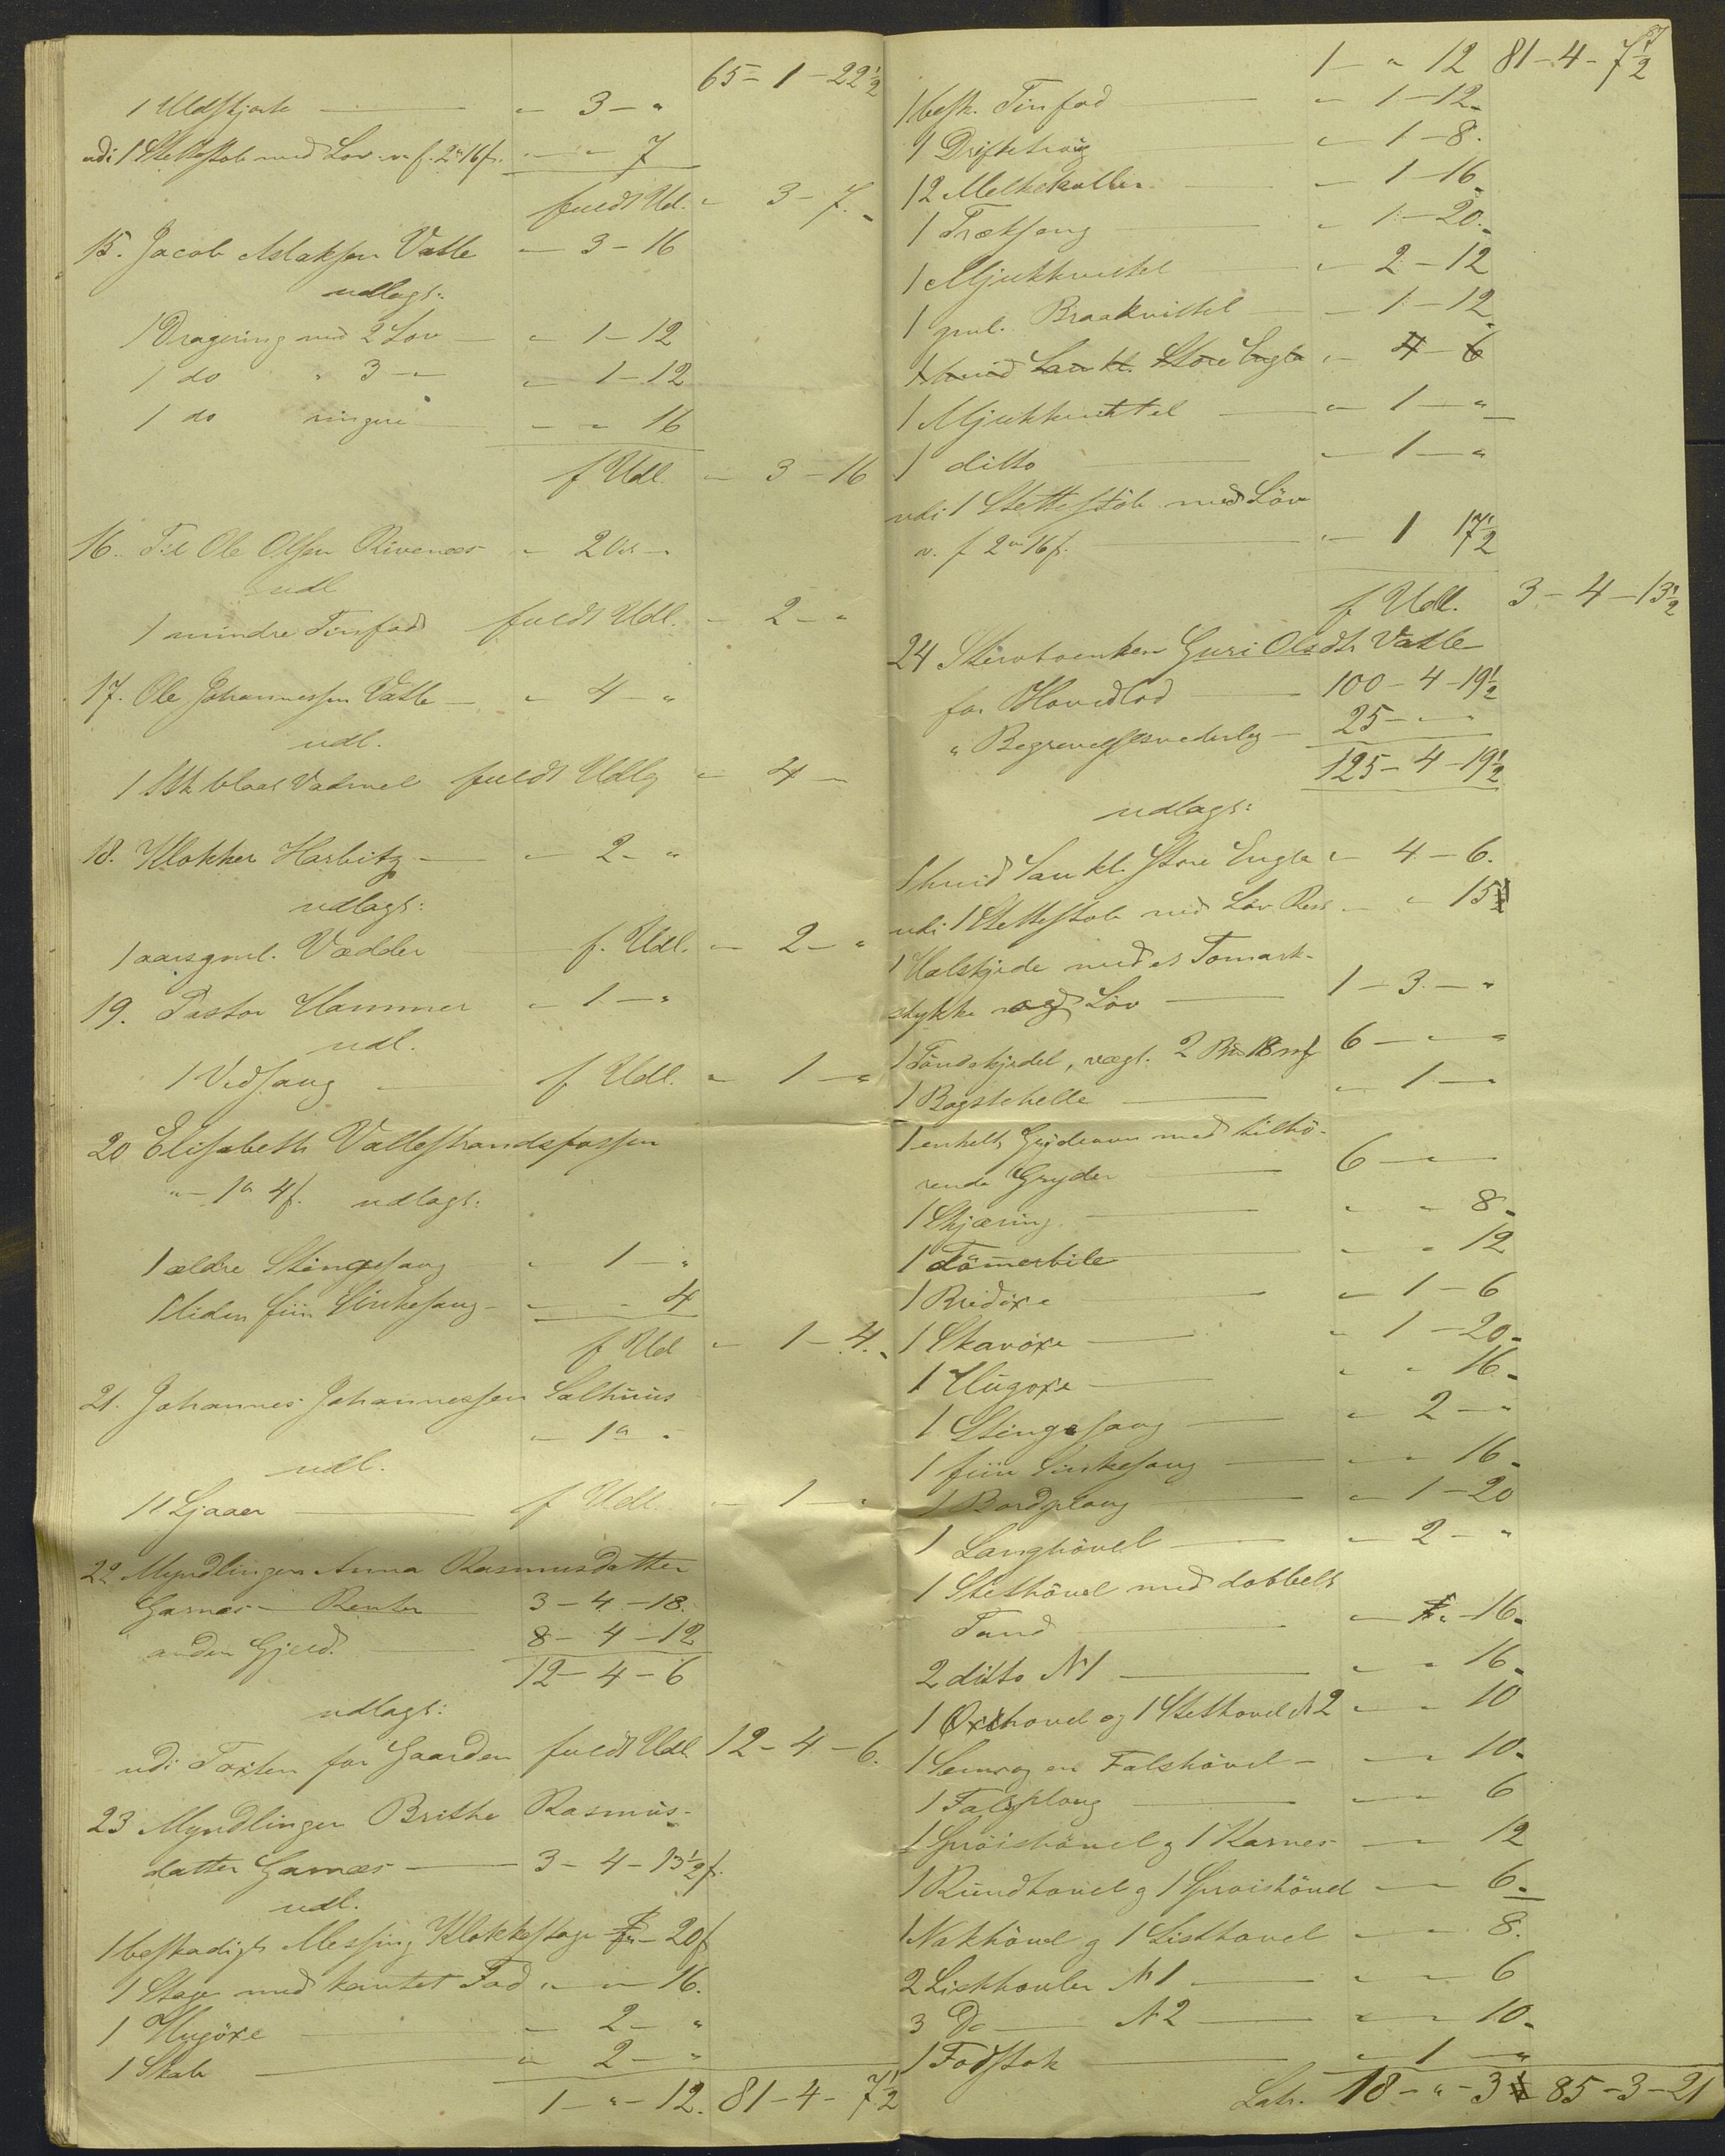 65 - 1 - 22 1/2
1 Uldskjorte — " - 3 - "
udi 1 Stettestob med Lov v. f. 2" 16 f. " - " - 7
fuldt Udl. " - 3 - 7.
15. Jacob Aslaksen Vatle " - 3 - 16
udlagt:
1 Dragering med 2 Løv — " - 1 - 12
1 do " 3 - " " - 1 - 12
1 do ringere " - " 16
f Udl. " - 3 - 16
16. Til Ole Olsen Rivenæs " - 2 -
udl
1 mindre Tinfad fuldt Udl. " - 2 - "
17. Ole Johannessen Vatle — " - 4 - "
udl.
1 Stk blaat Vadmel fuldt Udlg " - 4 -
18. Klokker Harbitz — " - 2 - "
udlagt:
1 aarsgml. Vædder f. Udl. " - 2 - "
19. Pastor Hammer " - 1 - "
udl.
1 Vedsaug f Udl. " - 1 - "
20 Elisabeth Vallestrandsfossen
" - 1 " 4 f. udlagt:
1 ældre Stingesaug " - 1 - "
1 liden fiin Sinkesaug - " - " 4
f Udl " - 1 - 4.
21. Johannes Johannessen Salhuus
" - 1 " -
udl.
11 Ljaaer — f Udl. " - 1 - "
22 Myndlingen Anna Rasmusdatter
Garnæs — Renter 3 - 4 - 18.
anden Gjeld. — 8 - 4 - 12
12 - 4 - 6
udlagt:
udi Taxten for Gaarden fuldt Udl 12 - 4 - 6.
23 Myndlingen Brithe Rasmus-
datter Garnæs — 3 - 4 - 13 1/2 f.
udl.
1 beskadigt Messing Klokkestage " - 20 f
1 Stage med kantet Fad " - " 16.
1 Hugöxe — " 2 - "
1 Skab — " 2 - "
1 - " - 12. 81 - 4 - 7 1/2
1 - " 12 81 - 4 - 7 1/2
1 besk. Tinfad — " - 1 - 12
1 Driftetroug " - 1 - 8.
12 Melkekoller — " - 1 - 16
1 Træksaug — " 1 - 20.
1 Mjukkvittel — " - 2 - 12
1 gml. Braakvittel — " - 1 - 12
1 hvid Sau kl. Store Engla " - 4 - 6
1 Mjukkvittel — " - 1 - "
1 ditto — " - 1 - "
udi 1 Stettestöb med Löv
v. f 2 " 16 f. — " - 1 17 1/2
f Udl. 3 - 4 - 13 1/2
24 Stervboenken Guri Olsdtr Vatle
for Hovedlod — 100 - 4 - 19 1/2
" Begravelsesvederlag — 25 - " - "
125 - 4 - 19 1/2
udlagt:
1 hvid Sau kl. Store Engla " - 4 - 6.
udi 1 Stettestob med Löv Rest " - " 15
1 Halskjede med et Tomark-
stykke og Löv — 1 - 3 - "
1 Töndekjedel, vægt. 2 18 mk 6 - " - "
1 Bagstehelle — " - 1 - "
1 enkelt Grydeovn med tilhö-
rende Gryder — 6 - " -
1 Skjæring — " - " 8
1 Tömmerbile — " - " 12
1 Bredöxe — " - 1 - 6
1 Skavöxe — " 1 - 20
1 Hugoxe — " - " 16
1 Stingesaug — " - 2 - "
1 fiin Sinkesaug — " - " 16
1 Bordploug — " - 1 - 20
1 Langhövel — " - 2 - "
1 Slethövel med dobbelt
Tand — " - " - 16
2 ditto No 1 — " - " 16
1 Oxehovel og 1 Slethovel No 2 " - " 10
1 Falshövel — " - " 10
1 Falsploug — " - " 6
1 hövel og 1 Karnes — " 12
1 Rundhövel og 1 hövel — " 6
1 Nakhövel og 1 Listhovel " - " 8.
2 Listhovler No 1 — " - " 6
3 Do — No 2 — " - " 10
1 Fodstok — " - 1 - "
Latr. 18 - " - 3 85 - 3 - 21